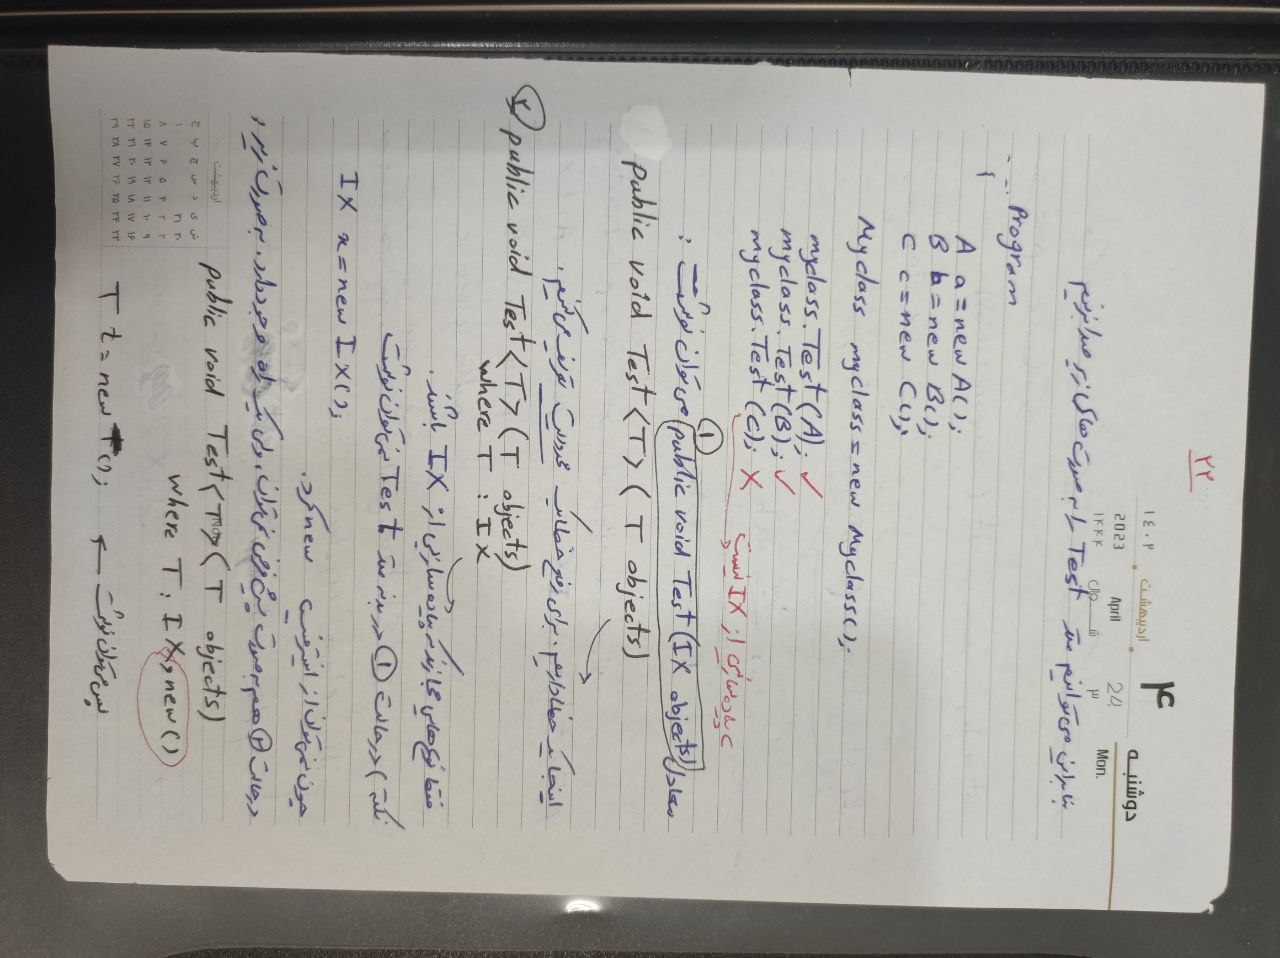 ۲۲
۴
دوشنبه
اردیبهشت
۱۴۰۲
Mon.
24
April
2023
۳
شـــوال
۱۴۴۴
بنابراین می‌توانیم متد Test را به صورت های زیر صدا بزنیم
... Program
{
A a = new A();
B b = new B();
C c = new C();
Myclass myclass = new Myclass();
myclass.Test(A); ✓
myclass.Test(B); ✓
myclass.Test(C); ✗
C پیاده سازیی از IX نیست
①
معادل public void Test(IX objects) می توان نوشت :
public void Test<T>(T objects)
اینجا یک خطا داریم. برای رفع خطا یک محدودیت تعریف می کنیم.
② public void Test<T>(T objects)
where T : IX
فقط نوع هایی مجازند که پیاده سازیی از IX باشند.
نکته ) در حالت ① در بدنه متد Test نمی توان نوشت
IX x = new IX();
چون نمی توان از اینترفیس new کرد.
در حالت ② هم به صورت پیش فرض نمی توان، ولی یک راه وجود دارد. به صورت زیر :
public void Test<T>(T objects)
where T : IX, new()
پس می توان نوشت ← T t = new T();
اردیبهشت
ش ی د س چ پ ج
۳۰ ۳۱ ۱
۲ ۳ ۴ ۵ ۶ ۷ ۸
۹ ۱۰ ۱۱ ۱۲ ۱۳ ۱۴ ۱۵
۱۶ ۱۷ ۱۸ ۱۹ ۲۰ ۲۱ ۲۲
۲۳ ۲۴ ۲۵ ۲۶ ۲۷ ۲۸ ۲۹